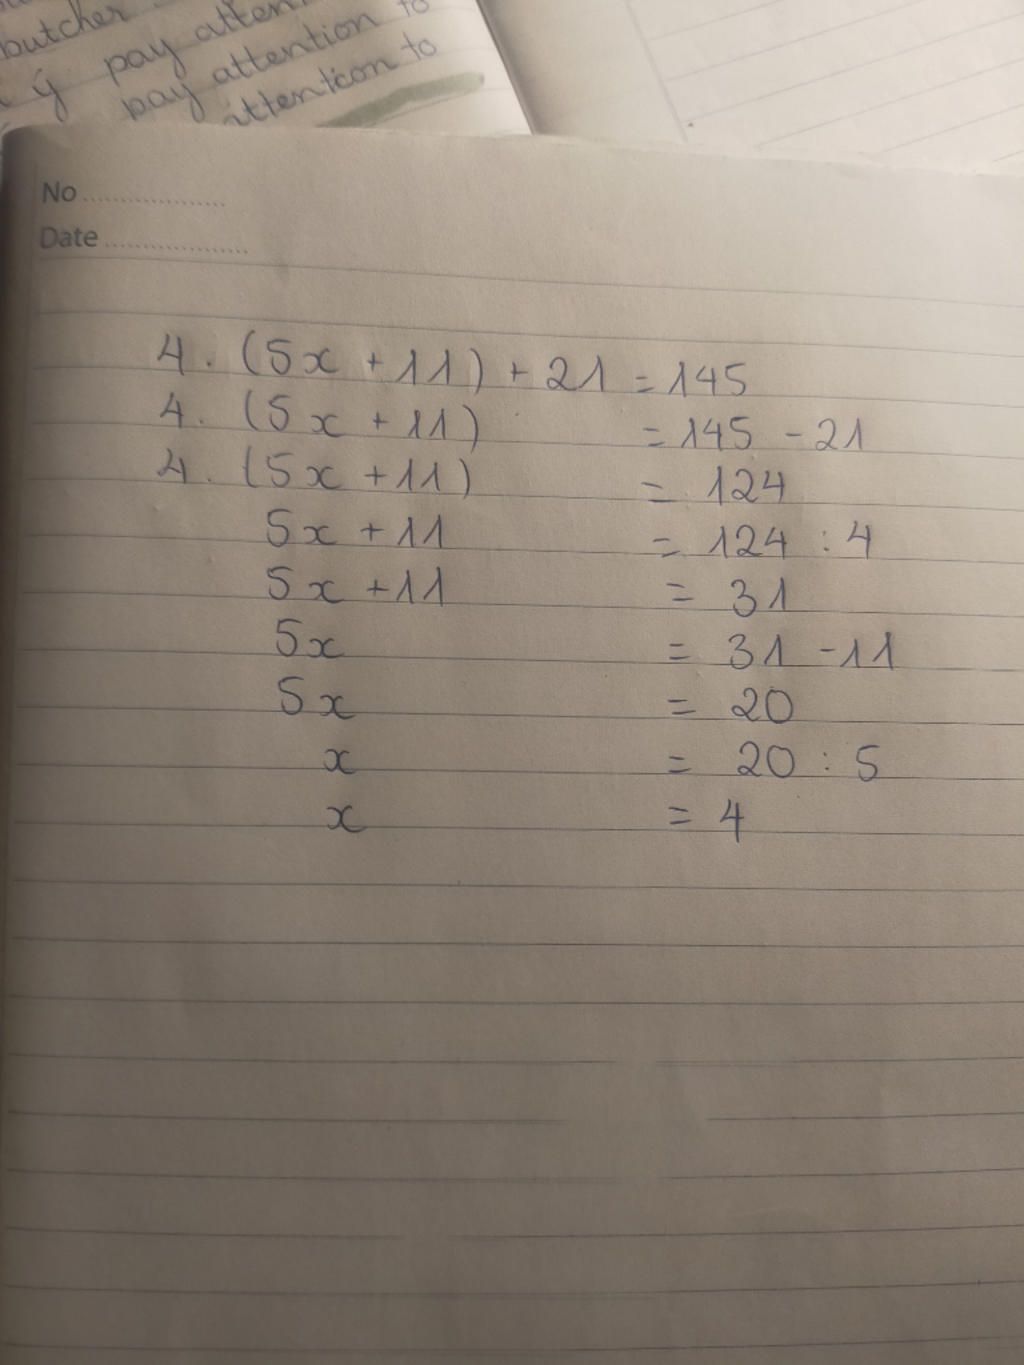 butcher
pay atten
pay attention to
attention to
No
Date
4. (5x + 11) + 21 = 145
4. (5x + 11) = 145 - 21
4. (5x + 11) = 124
5x + 11 = 124 : 4
5x + 11 = 31
5x = 31 - 11
5x = 20
x = 20 : 5
x = 4